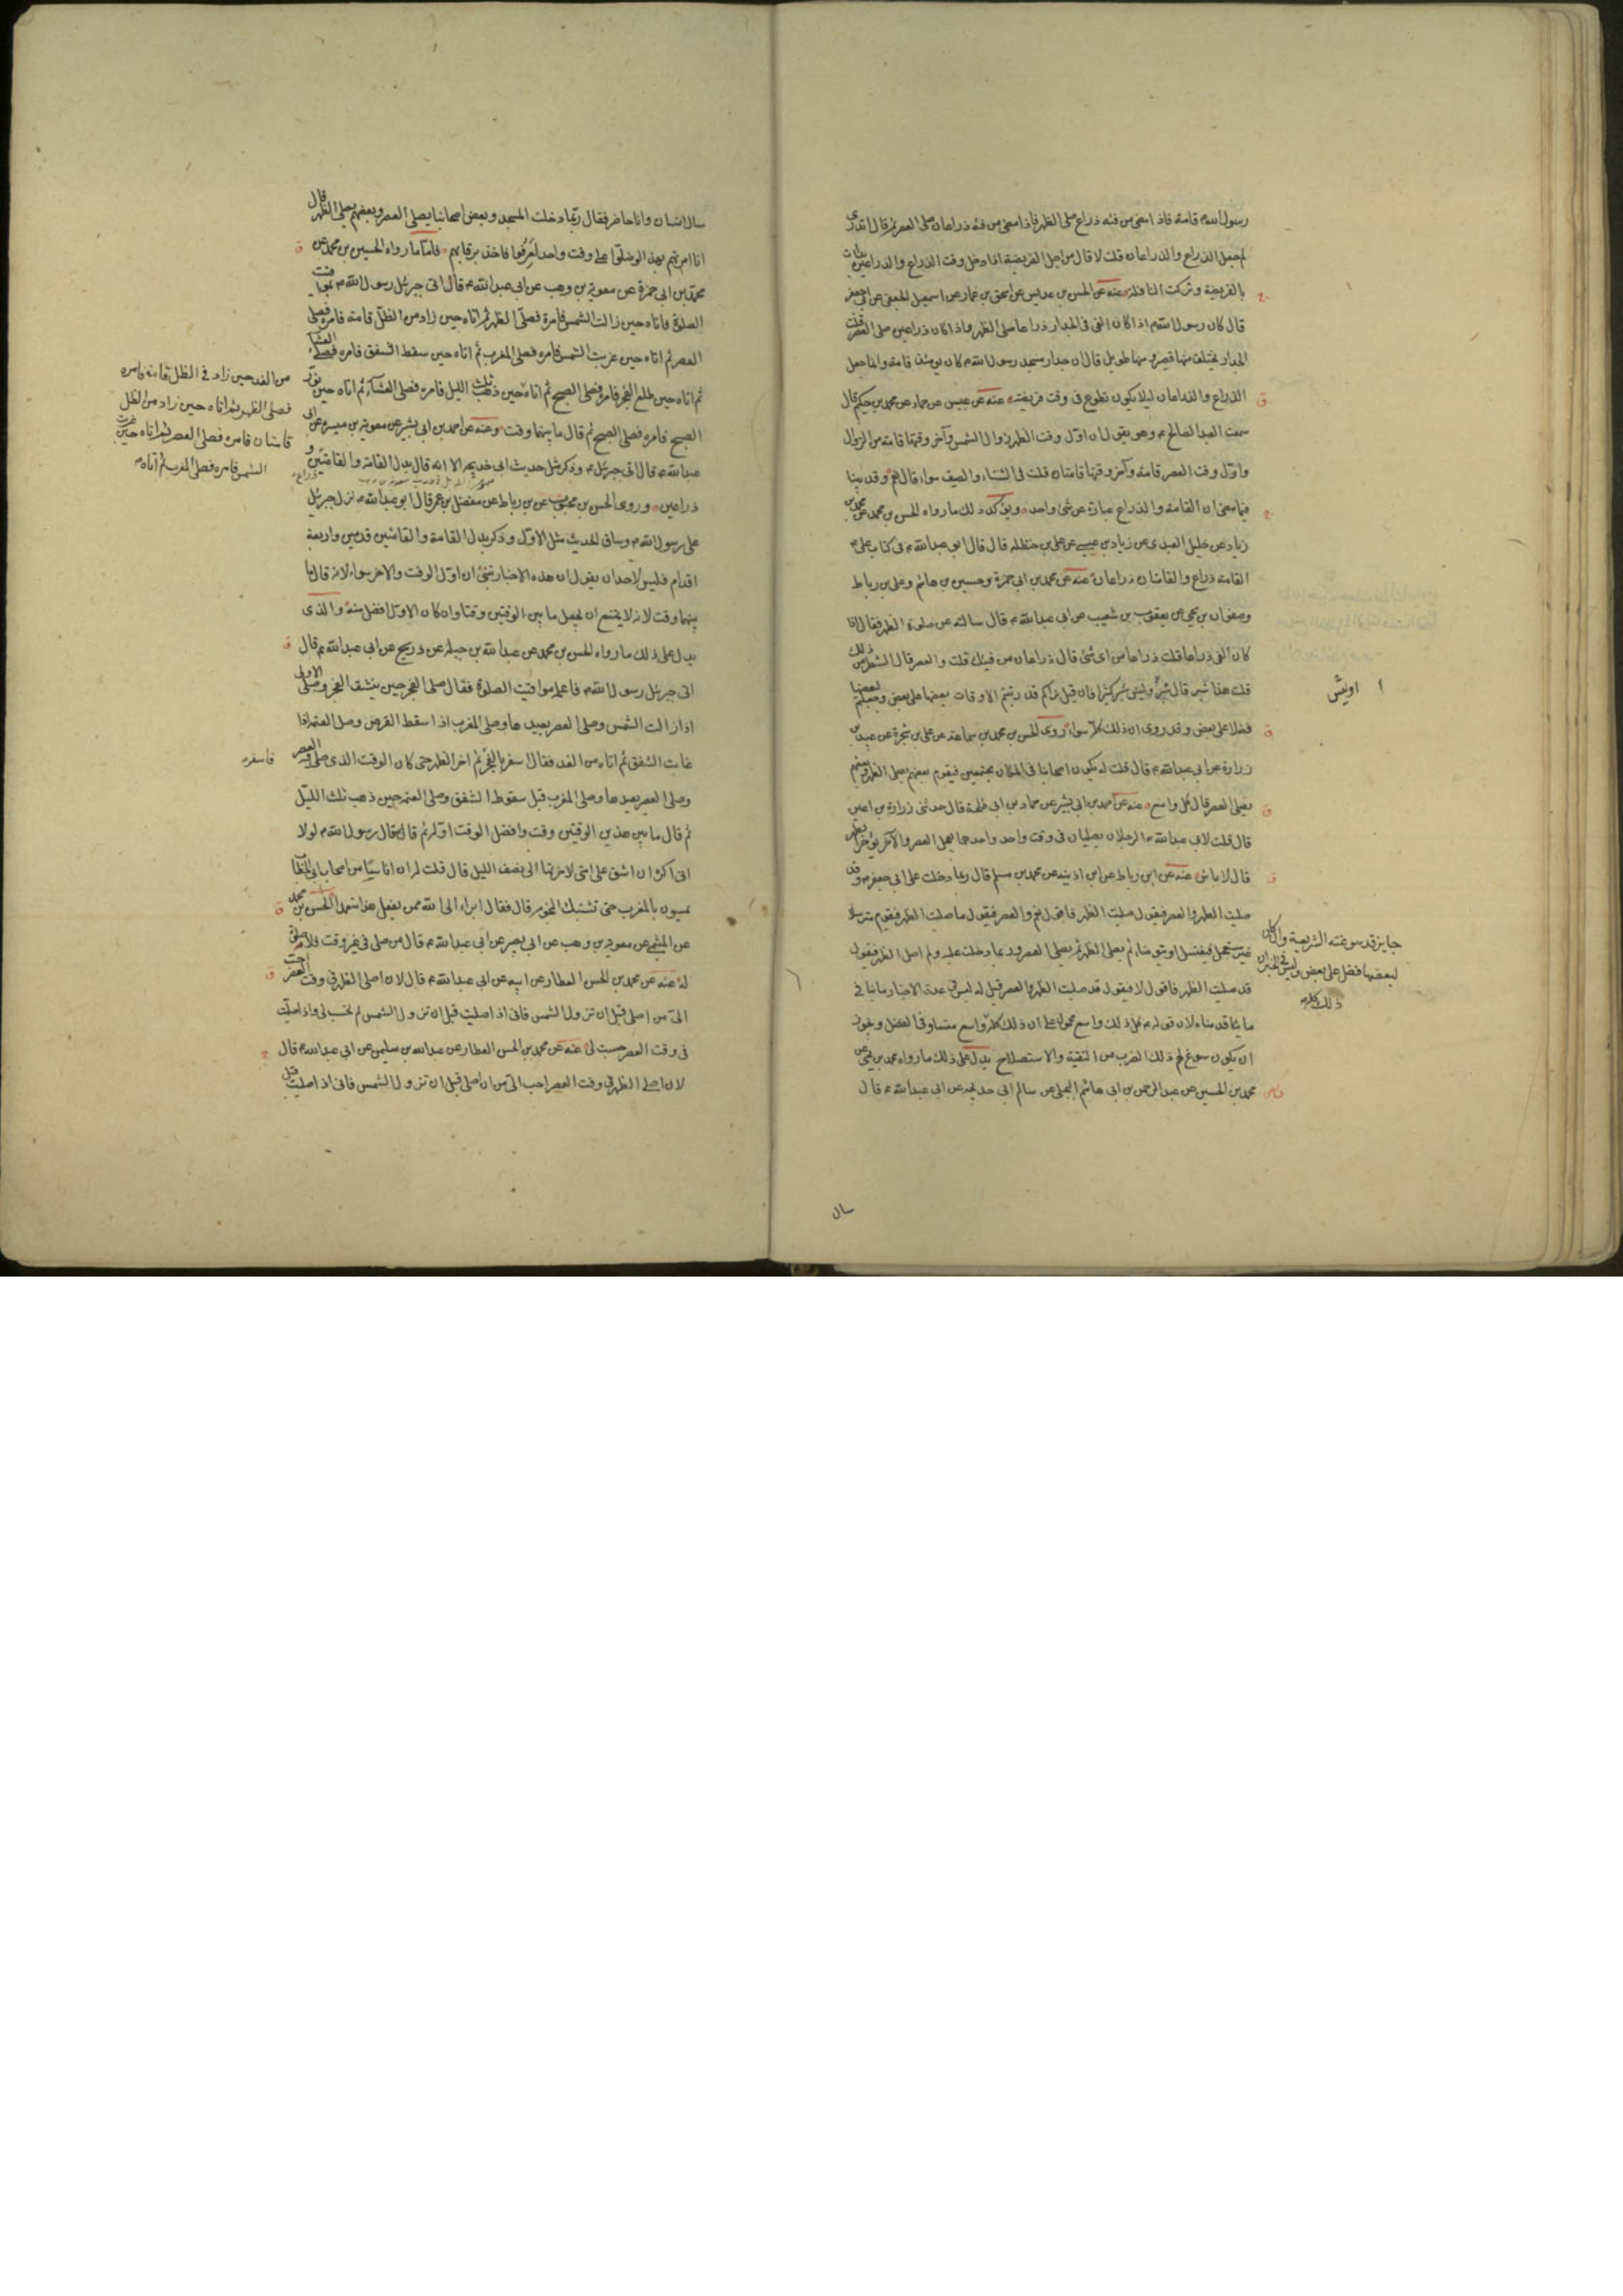 رسول الله م قامة فاذا مضى من فيئه ذراع صلى الظهر فاذا مضى من فيئه ذراعان صلى العصر ثم قال اتدري
لم جعل الذراع والذراعان قلت لا قال من اجل الفريضة اذا دخل وقت الذراع والذراعين بدات
بالفريضة وتركت النافلة عنه عن الحسن بن عديس عن اسحق بن عمار عن اسمعيل الجعفي عن ابي جعفر
قال كان رسول الله م اذا كان الفئ في الجدار ذراعا صلى الظهر واذا كان ذراعين صلى العصر قلت
الجدار يختلف منها قصير ومنها طويل قال ان جدار مسجد رسول الله م كان يومئذ قامة وانما جعل
الذراع والذراعان ليلا يكون تطوع في وقت فريضة عنه عن عبيس عن حماد عن محمد بن حكيم قال
سمعت العبد الصالح ع وهو يقول ان اول وقت الظهر زوال الشمس وآخر وقتها قامة من الزوال
واول وقت العصر قامة وآخر وقتها قامتان قلت في الشتاء والصيف سواء قال نعم وقد بينا
فيما مضى ان القامة والذراع عبارة عن شئ واحد ويؤكد ذلك ما رواه الحسن بن محمد عن محمد بن
زياد عن خليل العبدي عن زياد بن عيسى عن علي بن حنظلة قال قال ابو عبد الله ع في كتاب علي ع
القامة ذراع والقامتان ذراعان عنه عن محمد بن ابي حمزة وحسين بن هاشم وعلي بن رباط
وصفوان بن يحيى عن يعقوب بن شعيب عن ابي عبد الله ع قال سالته عن صلوة الظهر فقال اذا
كان الفئ ذراعا قلت ذراعا من اى شئ قال ذراعا من فيئك قلت والعصر قال الشطر من ذلك
قلت هذا شبر قال شبر وليس شبر كثيرا فان قيل نراكم قد رتبتم الاوقات بعضها على بعض وجعلتم لبعضها
فضلا على بعض وقد روى ان ذلك كله سواء روى الحسن بن محمد بن سماعة عن علي بن شجرة عن عبيد بن
زرارة عن ابي عبد الله ع قال قلت له يكون اصحابنا في المكان مجتمعين فيقوم بعضهم يصلى الظهر وبعضهم
يصلى العصر قال كل واسع عنه عن احمد بن ابي بشر عن حماد بن ابي طلحة قال حدثني زرارة بن اعين
قال قلت لابي عبد الله ع الرجلان يصليان في وقت واحد واحدهما يعجل العصر والآخر يؤخر الظهر
قال لا باس عنه عن ابن رباط عن ابن اذينه عن محمد بن مسلم قال ربما دخلت على ابي جعفر ع وقد
صليت الظهر والعصر فيقول صليت الظهر فاقول نعم والعصر فيقول ما صليت الظهر فيقوم مترسلا
غير مستعجل فيغتسل او يتوضاء ثم يصلى الظهر ثم يصلى العصر وربما دخلت عليه ولم اصل الظهر فيقول
قد صليت الظهر فاقول لا فيقول قد صليت الظهر والعصر قيل له ليس في هذه الاخبار ما ينافي
ما قدمناه لان قوله ع كل ذلك واسع محمول على ان ذلك كله واسع متساو في الفضل ويجوز
ان يكون سوغ لهم ذلك لضرب من التقية والاستصلاح يدل على ذلك ما رواه محمد بن يحيى عن
محمد بن الحسين عن عبد الرحمن بن ابي هاشم البجلي عن سالم ابي خديجه عن ابي عبد الله ع قال
جايز قد سوغته الشريعة وان كان
لبعضها فضل على بعض وليس في الخبر ان
ذلك كله
سال
سال انسان وانا حاضر فقال ربما دخلت المسجد وبعض اصحابنا يصلى العصر وبعضهم يصلى الظهر قال
انا امرتهم بهذا لو صلوا على وقت واحد لعرفوا فاخذ برقابهم فاما ما رواه الحسين بن محمد عن
محمد بن ابي حمزة عن معوية بن وهب عن ابي عبد الله ع قال اتى جبرئيل رسول الله م بمواقيت
الصلوة فاتاه حين زالت الشمس فامره فصلى الظهر ثم اتاه حين زاد من الظل قامة فامره فصلى
العصر ثم اتاه حين غربت الشمس فامره فصلى المغرب ثم اتاه حين سقط الشفق فامره فصلى العشاء
ثم اتاه حين طلع الفجر فامره فصلى الصبح ثم اتاه حين ذهب ثلث الليل فامره فصلى العشاء ثم اتاه حين نور
الصبح فامره فصلى الصبح ثم قال ما بينهما وقت وعنه عن احمد بن ابي بشر عن معوية بن ميسره عن ابي
عبد الله ع قال اتى جبرئيل ع وذكر مثل حديث ابي خديجه الا انه قال بدل القامة والقامتين ذراع و
ذراعين وروى الحسن بن محبوب عن بن رباط عن مفضل بن عمر قال ابو عبد الله ع نزل جبرئيل
على رسول الله م وساق الحديث مثل الاول وذكر بدل القامة والقامتين قدمين واربعة
اقدام فليس لاحد ان يقول ان هذه الاخبار تنبئ ان اول الوقت والاخر سواء لانه قال ما
بينهما وقت لانه لا يمتنع ان يجعل ما بين الوقتين وقتا وان كان الاول افضل منه والذى
يدل على ذلك ما رواه الحسن بن محمد عن عبد الله بن جبله عن ذريح عن ابي عبد الله ع قال
اتى جبرئيل رسول الله م فاعلمه مواقيت الصلوة فقال صلى الفجر حين ينشق الفجر وصلى الاولى
اذا زالت الشمس وصلى العصر بعيدها وصلى المغرب اذا سقط القرص وصل العتمة اذا
غابت الشفق ثم اتاه من الغد فقال اسفر بالفجر ثم اخر الظهر حتى كان الوقت الذى صلى فيه العصر
وصلى العصر بعيدها وصلى المغرب قبل سقوط الشفق وصلى العتمة حين ذهب ثلث الليل
ثم قال ما بين هذين الوقتين وقت وافضل الوقت اوله ثم قال قال رسول الله م لولا
انى اكره ان اشق على امتى لاخرتها الى نصف الليل قال قلت له ان اناسا من اصحاب ابي الخطاب
يمسون بالمغرب حتى تشتبك النجوم قال فقال ابراء الى الله ممن يفعل هذا متعمدا الحسن بن محمد
عن الميثمي عن معوية بن وهب عن ابي بصير عن ابي عبد الله ع قال من صلى في غير وقت فلا صلوة
له عنه عن محمد بن الحسن العطار عن ابيه عن ابي عبد الله ع قال لان اصلى الظهر في وقت العصر احب
الى من اصلى قبل ان تزول الشمس فانى اذا صليت قبل ان تزول الشمس لم تحسب لى واذا صليت
في وقت العصر حسبت لى عنه عن محمد بن الحسن العطار عن عبد الله بن سليمن عن ابي عبد الله ع قال
لان اصلى الظهر في وقت العصر احب الى من ان اصلى قبل ان تزول الشمس فانى اذا صليت قبل
من الغد حين زاد في الظل قامة فامره
فصلى الظهر ثم اتاه حين زاد من الظل
قامتان فامره فصلى العصر ثم اتاه حين غربت
الشمس فامره فصلى المغرب ثم اتاه
فاسفره